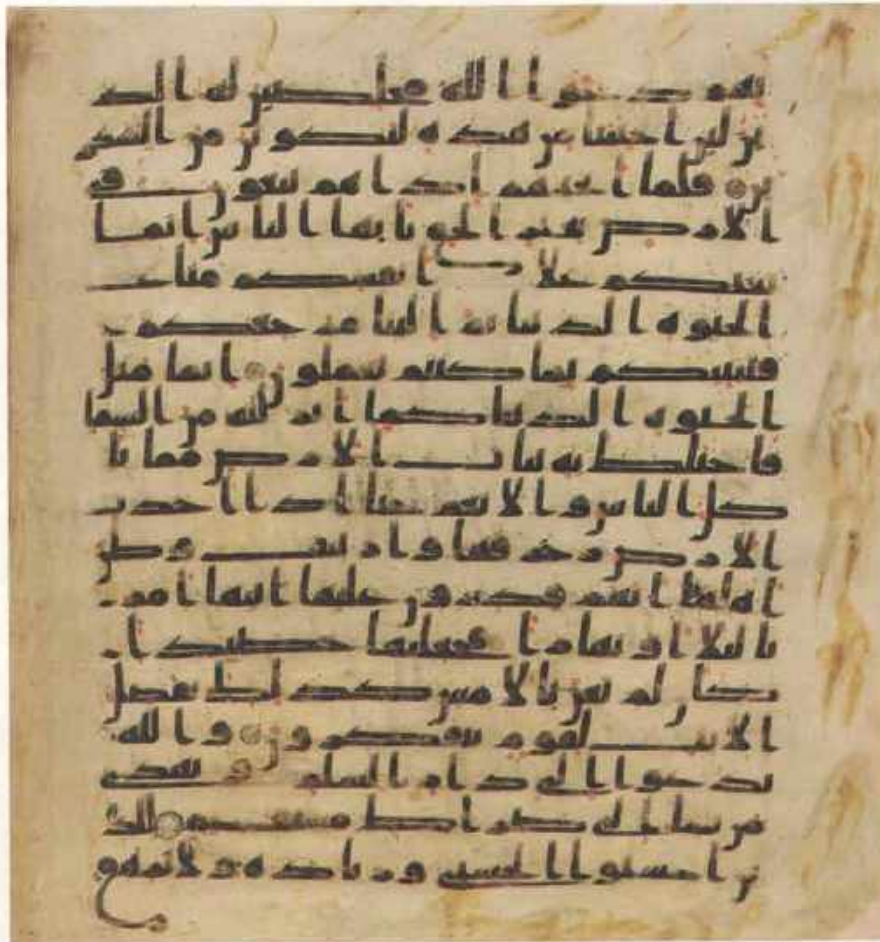 بهم دعوا الله مخلصين له الد
ين لئن انجيتنا من هذه لنكونن من الشكر
ين فلما انجيهم اذا هم يبغون في
الارض بغير الحق يايها الناس انما
بغيكم على انفسكم متاع
الحيوة الدنيا ثم الينا مرجعكم
فننبيكم بما كنتم تعملون انما مثل
الحيوة الدنيا كما انزلنه من السما
فاختلط به نبات الارض مما يا
كل الناس والانعم حتا اذا اخذت
الارض زخرفها وازينت وظن
اهلها انهم قدرون عليها اتيها امر
نا ليلا او نهارا فجعلنها حصيدا
كان لم تغن بالامس كذلك نفصل
الايت لقوم يتفكرون والله
يدعوا الى دار السلم ويهدي
من يشا الى صراط مستقيم للذ
ين احسنوا الحسنى وزيادة ولا يرهق